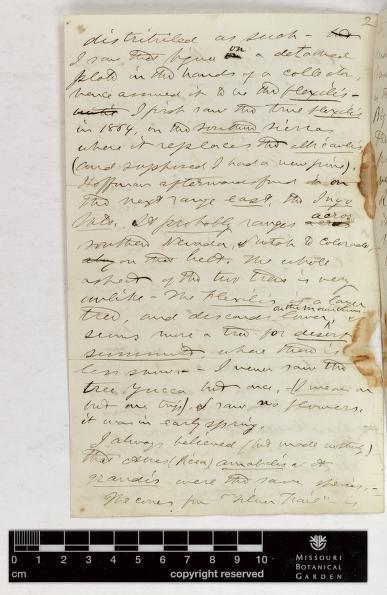 2
distributed as such -
I saw the figure on a detached
plate in the hands of a collector,
hence assumed it to be the flexilis -
I first saw the true flexilis
in 1864, in the southern sierras
where it replaces the albicaulis
(and supposed I had a new pine).
Hoffman afterwards found on
the next range east, the Inyo
Mts. It probably ranges across
southern Nevada, & Utah to Colorado
on that belt. The whole
aspect of the two trees is very
unlike - The flexilis is a larger
tree, and descends lower on the mountains
seems more a tree for desert
summits where there is
less snow - I never saw the
tree Yucca but once, (I mean on
but one trip). I saw no flowers.
it was in early spring.
I always believed (but made nothing)
that Abies (Picea) amabilis &
grandis were the same species.
The cones for "Silver
0 1 2 3 4 5 6 7 8 9 10
cm
copyright reserved
MISSOURI
BOTANICAL
GARDEN